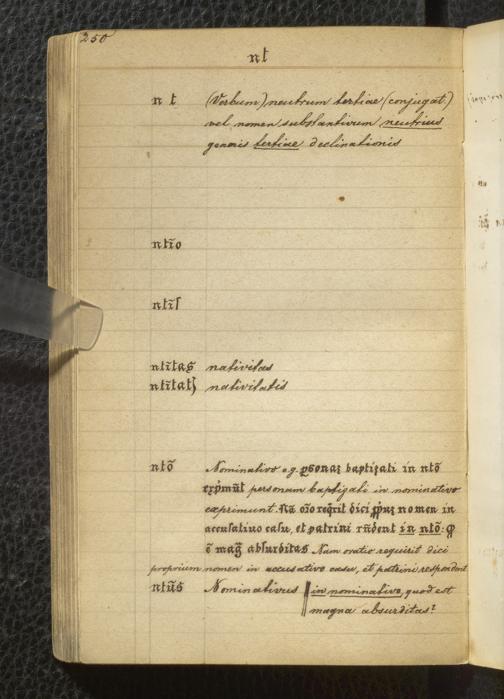 250
nt
nt (Verbum) neutrum tertiae (conjugat.)
vel nomen substantivum neutrius
generis tertiae declinationis
ntĩo
ntĩſ
ntĩtas nativitas
ntĩtatꝭ nativitatis
ntõ Nominativo e.g. ꝑsonaꝫ baptiȝati in ntõ
exp̃mũt personam baptizati in nominativo
exprimunt. Nã oĩo reqͥrit dici ꝓpͥuꝫ nomen in
accusatiuo casu, et patrini rñdent in ntõ: ꝙ
ẽ mag̃ absurditas Nam oratio requirit dici
proprium nomen in accusativo casu, et patrini respondent
ntũs Nominativus in nominativo, quod est
magna absurditas?